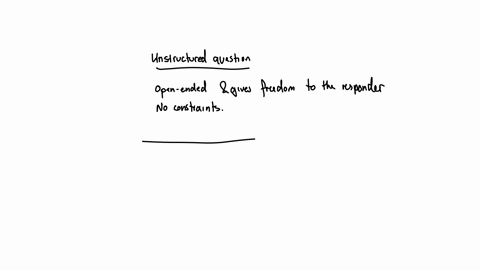 Unstructured question
Open-ended & gives freedom to the responder
No constraints.